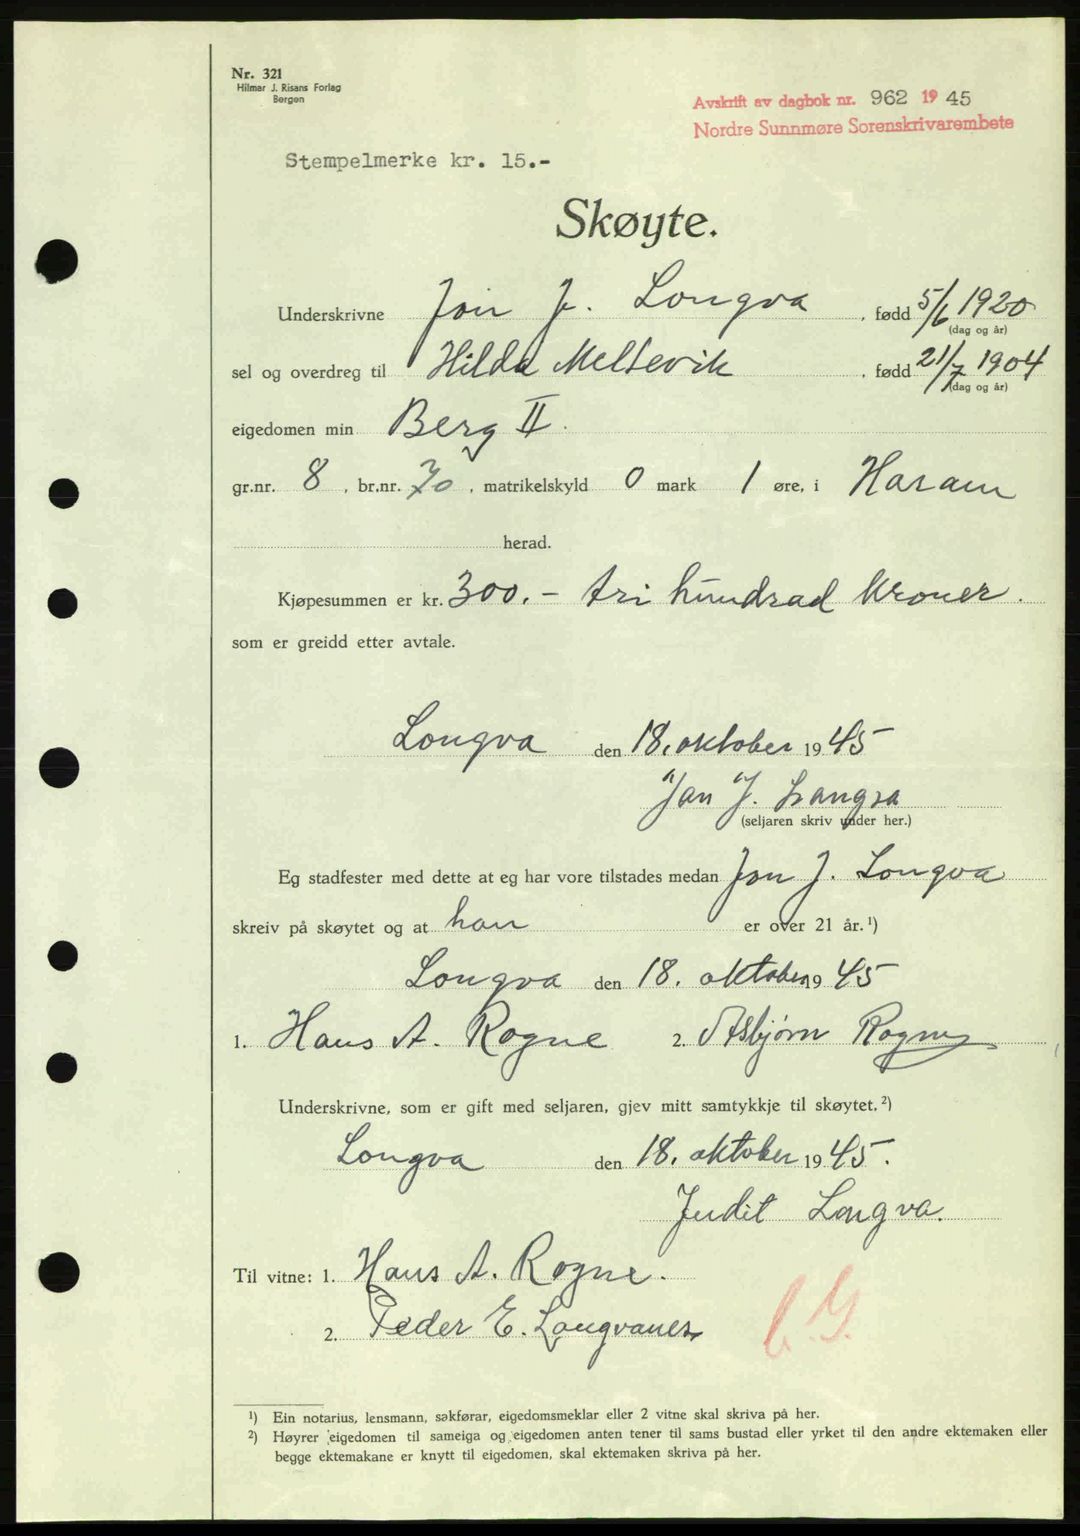 Nr. 321
Hilmar J. Risans Forlag
Bergen
Avskrift av dagbok nr. 962 1945
Nordre Sunnmøre Sorenskrivarembete
Stempelmerke kr. 15.-
Skøyte.
Underskrivne Jon J. Longva, fødd 5/6 1920
(dag og år)
sel og overdreg til Hilda Meltevik, fødd 21/7 1904
(dag og år)
eigedomen min Berg II.
gr.nr. 8, br.nr. 70, matrikelskyld 0 mark 1 øre, i Haram
herad.
Kjøpesummen er kr. 300.- tri hundrad kroner.
som er greidd etter avtale.
Longva den 18. oktober 1945
Jon J. Longva
(seljaren skriv under her.)
Eg stadfester med dette at eg har vore tilstades medan Jon J. Longva
skreiv på skøytet og at han er over 21 år.¹)
Longva den 18. oktober 1945
1. Hans A. Rogne 2. Asbjørn Rogne
Underskrivne, som er gift med seljaren, gjev mitt samtykkje til skøytet.²)
Longva den 18. oktober 1945.
Judit Longva.
Til vitne: 1. Hans A. Rogne.
2. Peder E. Longvanes
¹) Ein notarius, lensmann, sakførar, eigedomsmeklar eller 2 vitne skal skriva på her.
²) Høyrer eigedomen til sameiga og eigedomen anten tener til sams bustad eller yrket til den andre ektemaken eller
begge ektemakane er knytt til eigedomen, skal ektemaken skriva på her.